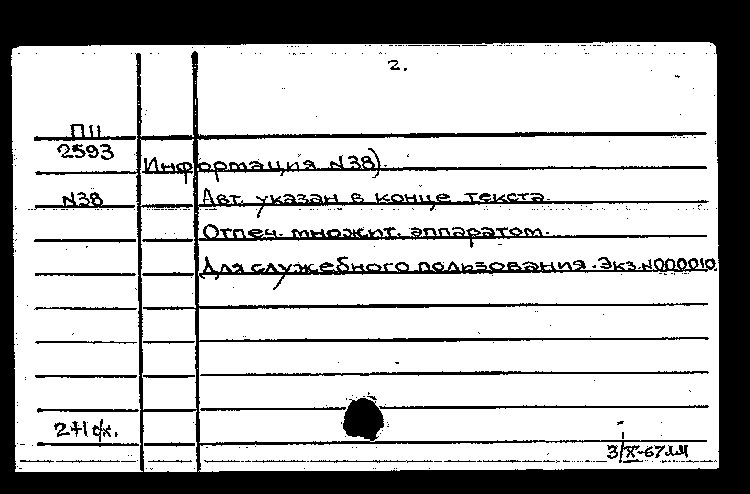 2.
П11
2593
Информация N38).
N38 Авт. указан в конце текста.
Отпеч. множит. аппаратом.
Для служебного пользования. Экз.N000010
2+1
3/X-67